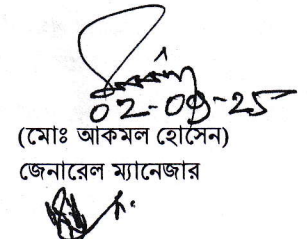 02-09-25
(মোঃ আকমল হোসেন)
জেনারেল ম্যানেজার